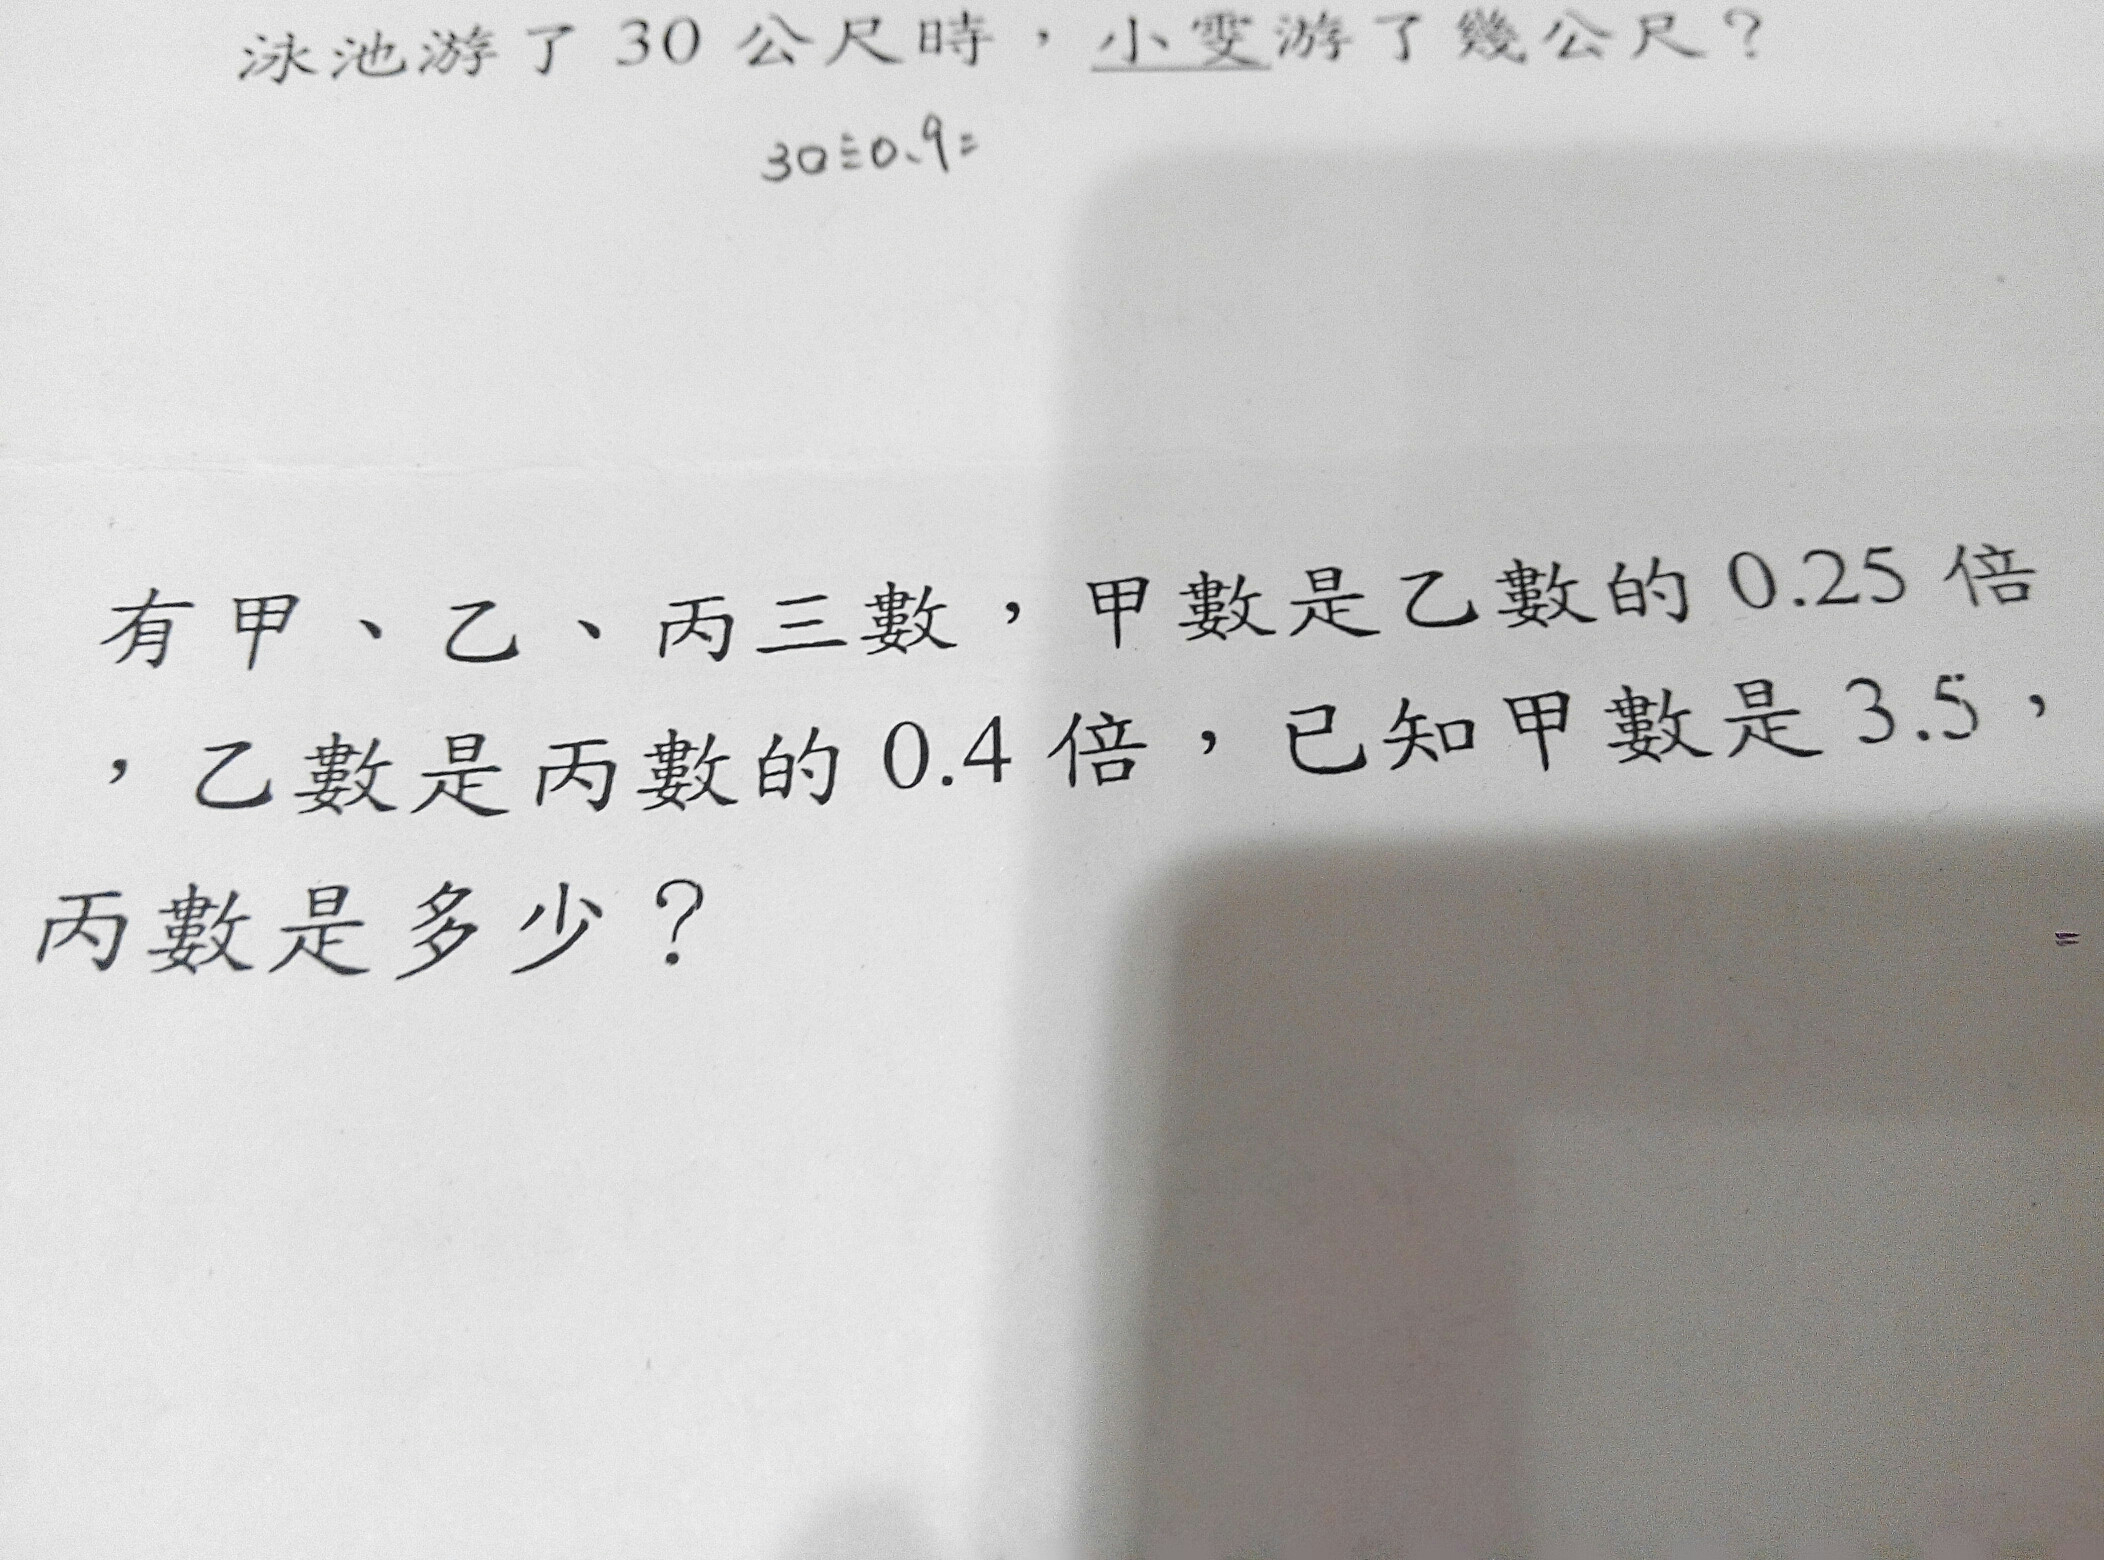 泳池游了 30 公尺時，小雯游了幾公尺？
30÷0.9=
有甲、乙、丙三數，甲數是乙數的 0.25 倍
，乙數是丙數的 0.4 倍，已知甲數是 3.5，
丙數是多少？
=